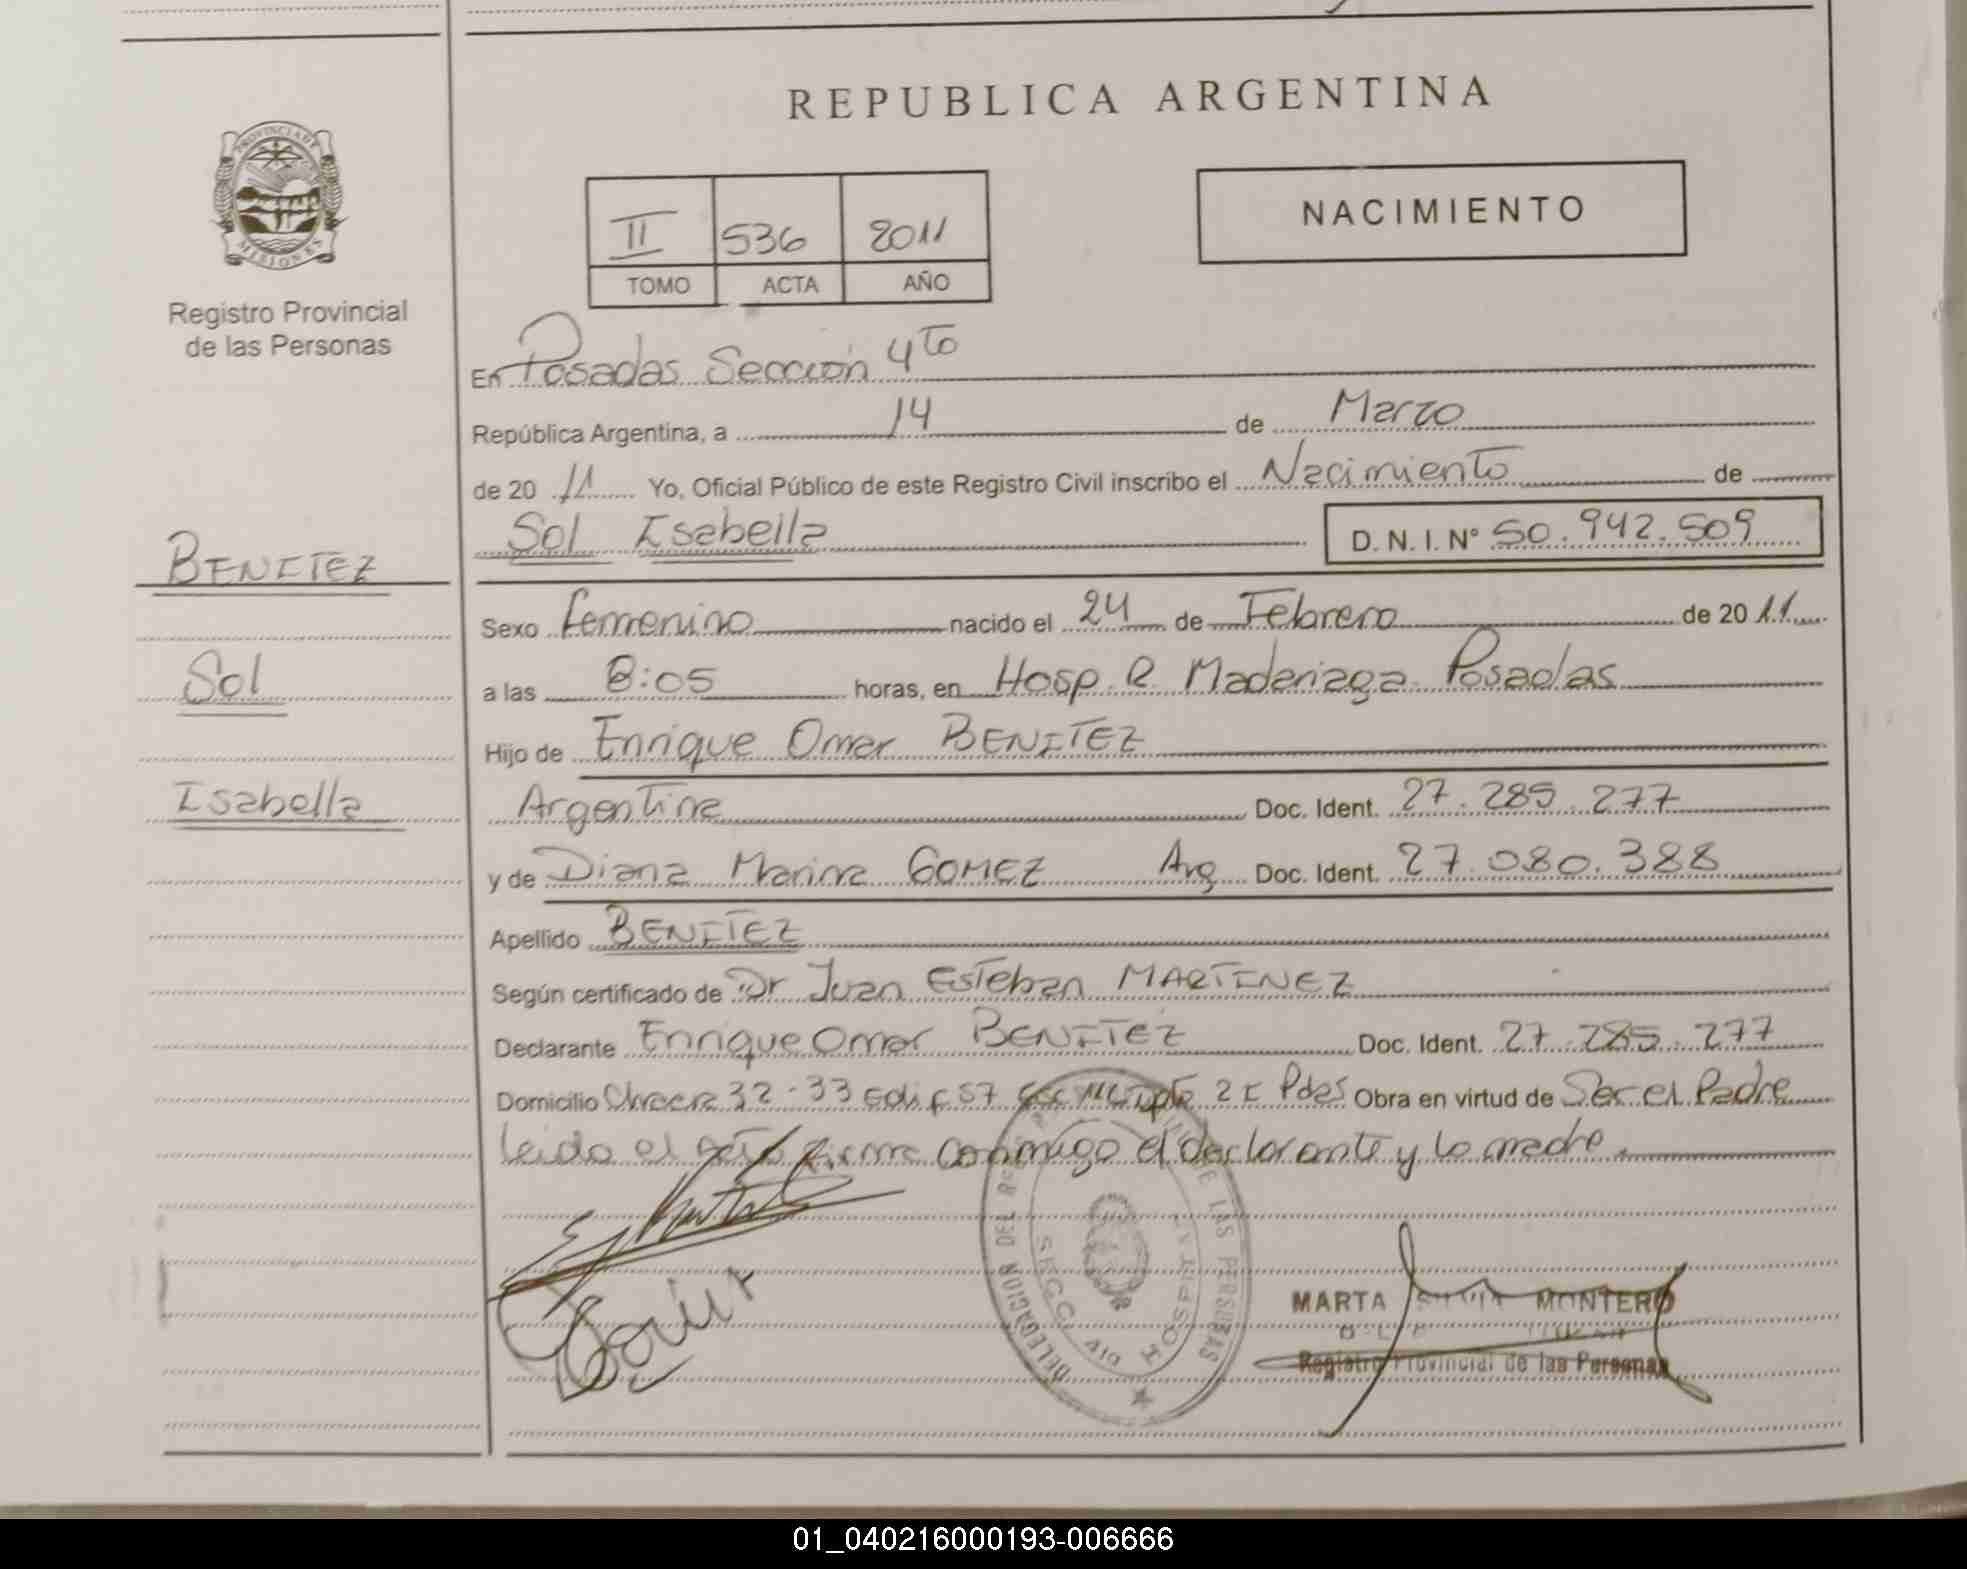 REPUBLICA ARGENTINA
PROVINCIA DE
MISIONES
Registro Provincial
de las Personas
NACIMIENTO
II 536 2011
TOMO ACTA AÑO
En Posadas Sección 4to
República Argentina, a 14 de Marzo
de 2011 Yo, Oficial Público de este Registro Civil inscribo el Nacimiento de
Sol Isabella D.N.I. Nº 50.942.509
BENITEZ
Sol
Isabella
Sexo femenino nacido el 24 de Febrero de 2011
a las 8:05 horas, en Hosp. R Madariaga Posadas
Hijo de Enrique Omar BENITEZ
Argentina Doc. Ident. 27.285.277
y de Diana Marina GOMEZ Arg Doc. Ident. 27.080.388
Apellido BENITEZ
Según certificado de Dr Juan Esteban MARTINEZ
Declarante Enrique Omar BENITEZ Doc. Ident. 27.285.277
Domicilio Chacra 32-33 Edif 57 2 Pdas Obra en virtud de Ser el Padre
leido el firma conmigo el declarante y la madre.
DELEGACION DEL DE LAS PERSONAS
SECC. 4ta HOSPITAL
MARTA SILVIA MONTERO
Registro Provincial de las Personas
01_040216000193-006666